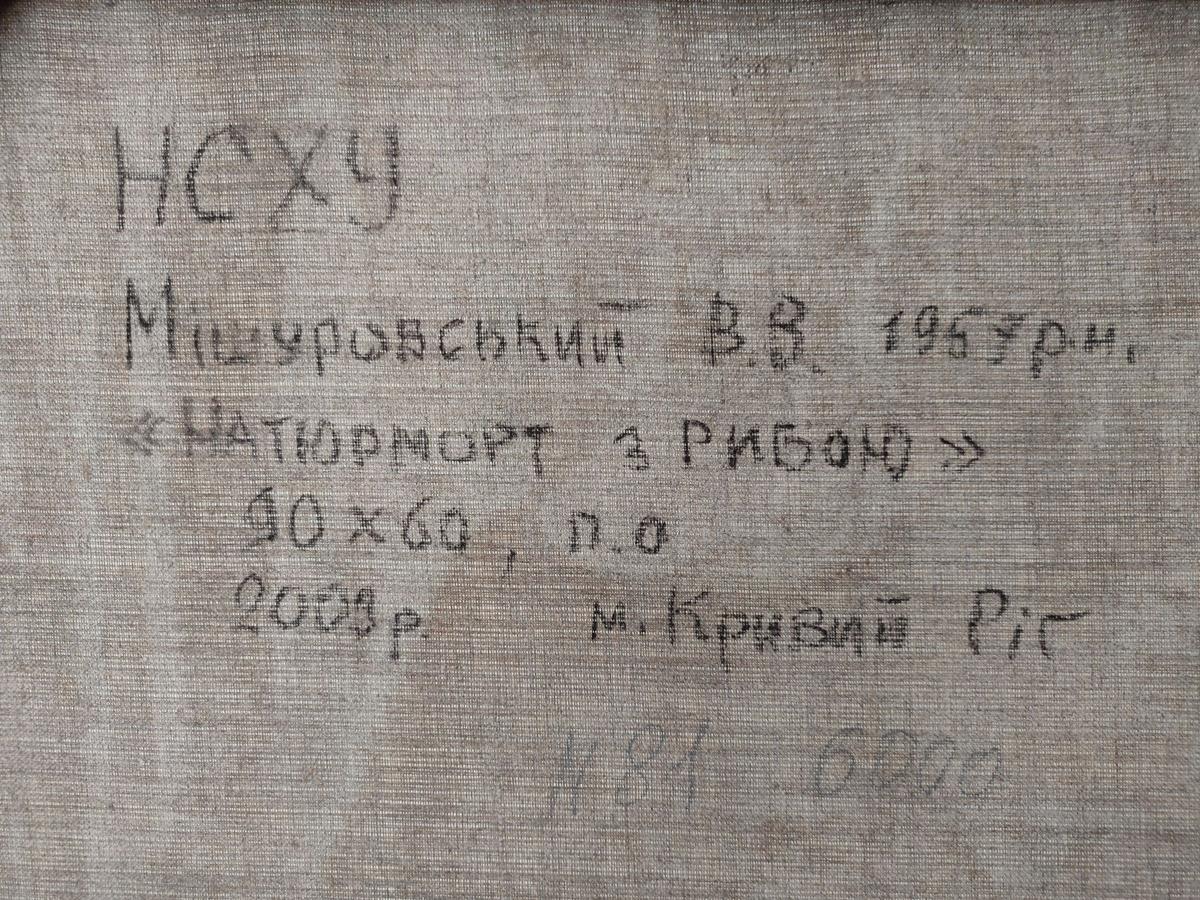 НСХУ
Мішуровський В.В. 1957 р.н.
«НАТЮРМОРТ З РИБОЮ»
90 х 60, п.о
2003 р. м. Кривий Ріг
N 81 6000